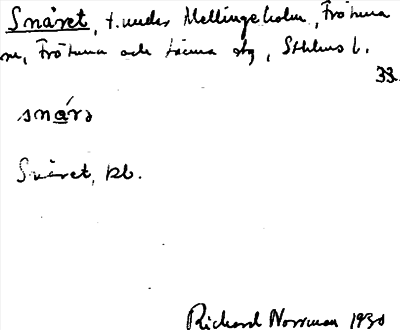 Snäret, t. under Mellingeholm, Frötuna
sn, Frötuna och Länna skg, Sthlms l.
33.
snárə
Snäret, kb.
Richard Norrman 1930